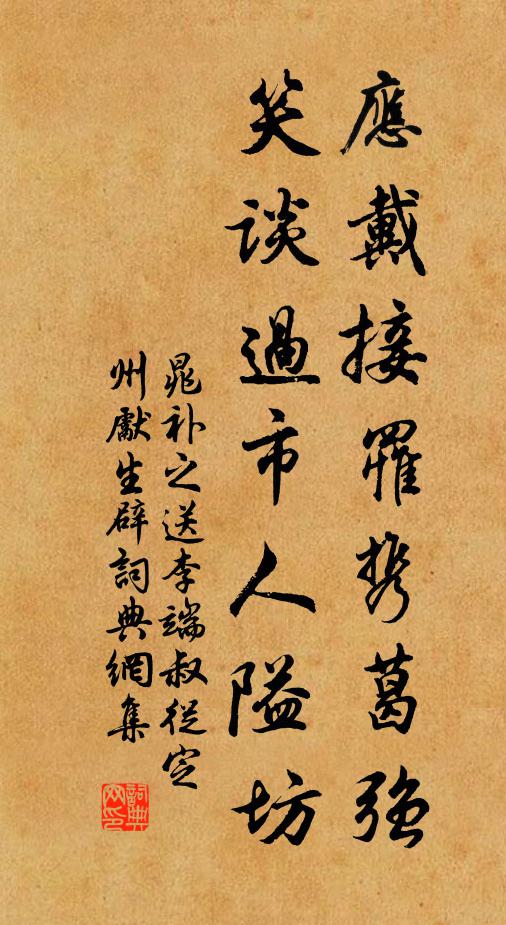 應戴接羅携葛強
笑談過市人隘坊
晁补之送李端叔從定
州獻生辟詞典網集
詞典網印